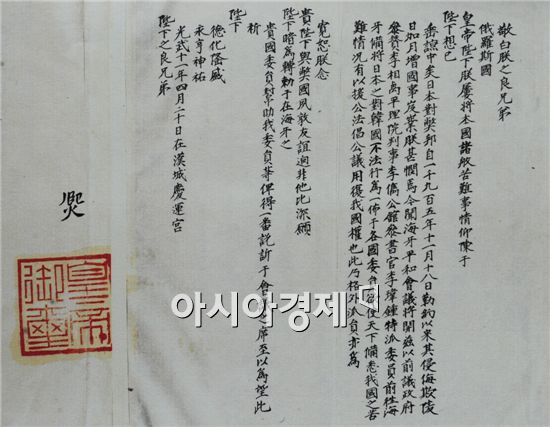 敬白朕之良兄弟
俄羅斯國
皇帝陛下朕屢將本國諸般苦難事情仰陳于
陛下想已
垂諒中矣日本對弊邦自一千九百五年十一月十八日勒約以來其侵侮欺凌
日加月增國事岌業朕甚憫焉今聞海牙平和會議將開玆以前議政府
參贊李相卨平理院判事李儁公館參書官李瑋鍾特派委員前往海
牙備將日本之對韓國不法行爲一佈于各國委員使天下備悉我國之苦
難情况有以援公法倡公議用復我國權也此乃格外派員亦爲
寬恕朕念
貴陛下與弊國夙敦友誼逈非他比深願
陛下暗爲轉勅于在海牙之
貴國委員幫助我委員等俾得一番託訴于會席至以爲望此
祈
陛下
德化隆盛
永享神祐
光武十一年四月二十日在漢城慶運宮
陛下之良兄弟
皇帝
御璽
아시아경제